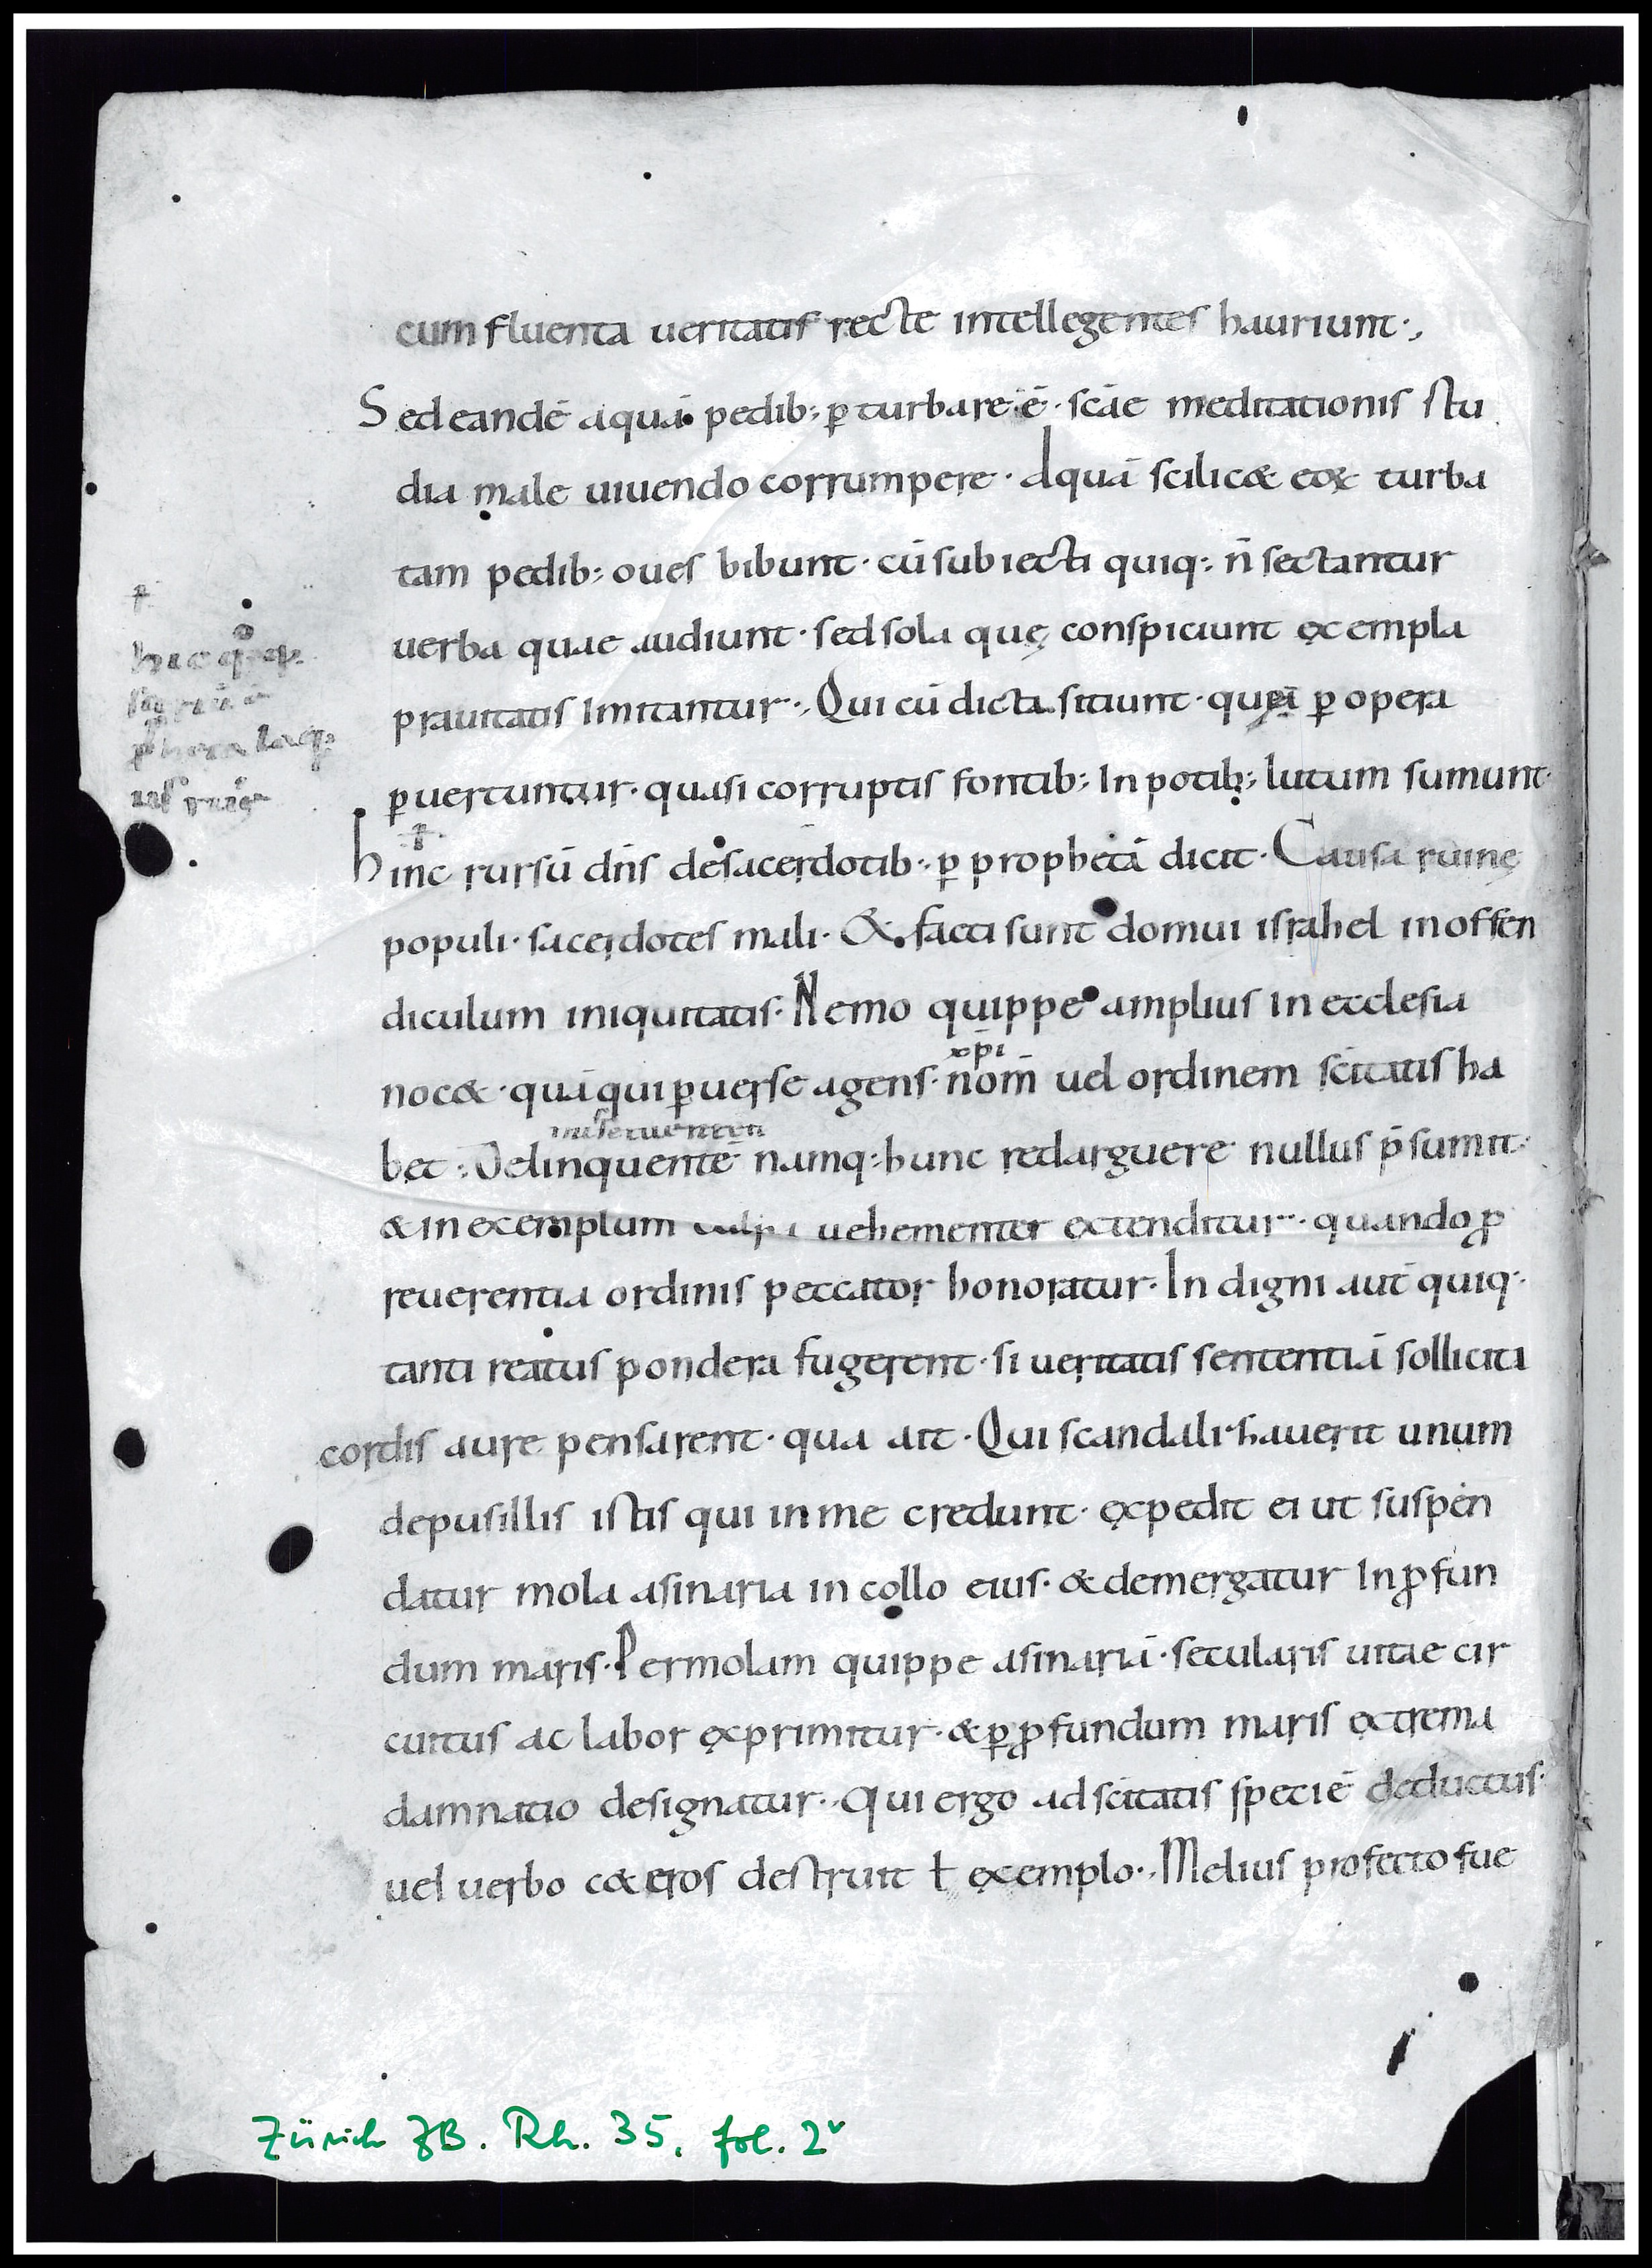 cum fluenta ueritatis recte intellegentes hauriunt·,
Sed eandē aquā pedib; p̲turbare ē· sc̄ae meditationis stu
dia male uiuendo corrumpere· Aquā scilic& eoꝝ turba
tam pedib; oues bibunt· cū subiecti quiq; n̄ sectantur
uerba quae audiunt· sed sola quę conspiciunt exempla
prauitatis Imitantur·, Qui cū dicta sitiunt· quia ꝑ opera
ꝑuertuntur· quasi corruptis fontib; In potib; lutum sumunt·
hinc rursū dn̄s de sacerdotib; ꝑ prophetā dicit· Causa ruinę
populi· sacerdotes mali· & facti sunt domui israhel in offen
diculum iniquitatis· Nemo quippe amplius in ecclesia
xp̄i
noc&· quā qui ꝑuerse agens· nom̄ uel ordinem sc̄itatis ha
bet; Delinquentē namq; hunc redarguere nullus p̄sumit·
& in exemplum culpa uehementer extenditur· quando ꝓ
reuerentia ordinis peccator honoratur· Indigni aut̄ quiq;
tanti reatus pondera fugerent· si ueritatis sententiā solliciti
cordis aure pensarent· qua ait· Qui scandalishauerit unum
de pusillis istis qui in me credunt· expedit ei ut suspen
datur mola asinaria in collo eius· & demergatur In ꝓfun
dum maris· Per molam quippe asinariā· secularis uitae cir
cuitus ac labor exprimitur· & ꝑ ꝓfundum maris extrema
damnatio designatur·, Qui ergo ad sc̄itatis speciē deductus·
uel uerbo c&eros destruit ł exemplo·, Melius profecto fue
Zürich ZB. Rh. 35, fol. 2v